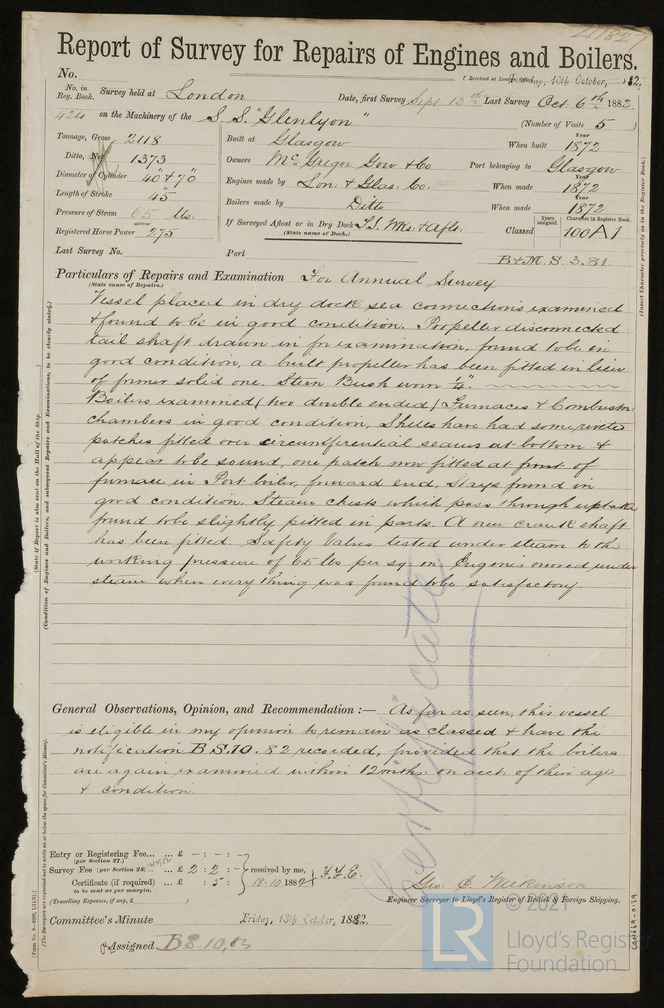 41827
Report of Survey for Repairs of Engines and Boilers.
No. (Received at London Office, 10th October, 1882.
No. in Reg. Book. Survey held at London Date, first Survey Sept. 13th Last Survey Oct. 6th 1882
424 on the Machinery of the S.S. "Glenlyon" (Number of Visits 5)
Tonnage, Gross 2118 Built at Glasgow When built Year 1872
Ditto, Net 1373 Owners McGregor Gow & Co Port belonging to Glasgow
Diameter of Cylinder 40" & 70" Engines made by Lon. & Glas. Co. When made Year 1872
Length of Stroke 45" Boilers made by Ditto When made Year 1872
Pressure of Steam 65 lbs. If Surveyed Afloat or in Dry Dock Wks. & aflo. Classed Years assigned. Character in Register Book. 100A1
(State name of Dock.)
Registered Horse Power 275
Last Survey No. Port B&M.S. 3.81
Particulars of Repairs and Examination For Annual Survey
(State cause of Repairs.)
Vessel placed in dry dock sea connections examined
& found to be in good condition. Propeller disconnected
tail shaft drawn in for examination, found to be in
good condition, a built propeller has been fitted in lieu
of former solid one. Stern Bush worn 1/4".
Boilers examined (two double ended) Furnaces & Combustion
chambers in good condition, Shells have had some riveted
patches fitted over circumferential seams at bottom &
appear to be sound, one patch now fitted at front of
furnace in Port boiler, forward end, Stays found in
good condition. Steam chests which pass through uptake
found to be slightly pitted in parts. A new crank shaft
has been fitted. Safety Valves tested under steam to the
working pressure of 65 lbs per sq. in. Engines moved under
steam when every thing was found to be satisfactory.
General Observations, Opinion, and Recommendation :— As far as seen, this vessel
is eligible in my opinion to remain as classed & have the
notification B.S. 10. 82 recorded, provided that the boilers
are again examined within 12 mths. on acct. of their age
& condition.
Certificate
Entry or Registering Fee... £ - : - : -
(per Section 27.)
Survey Fee (per Section 28) £ 2 : 2 : - received by me,
Certificate (if required) £ : 5 : 18.10.1882
to be sent as per margin.
(Travelling Expenses, if any, £ )
Geo. E.
Engineer Surveyor to Lloyd's Register of British & Foreign Shipping.
Committee's Minute Friday, 13th October, 1882.
Assigned B S 10, 83
© 2021
LR
Lloyd's Register
Foundation